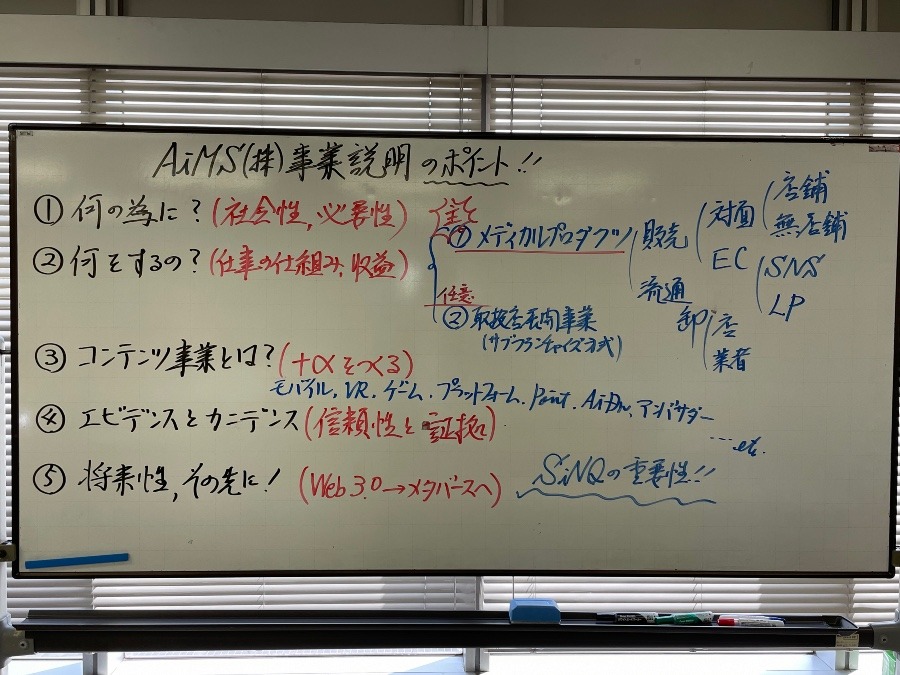 AiMS(株)事業説明のポイント!!
① 何の為に? (社会性、必要性)
② 何をするの? (仕事の仕組み、収益)
① メディカルプロダクツ
販売
対面
店舗
無店舗
EC
SNS
LP
流通
卸
店
業者
任意
② 取扱店展開事業
(サブフランチャイズ方式)
③ コンテンツ事業とは? (+αをつくる)
モバイル、VR、ゲーム、プラットフォーム、Point、
アンバサダー
…etc.
④ エビデンスと (信頼性と証拠)
⑤ 将来性、その先に! (Web3.0→メタバースへ)
SiNQの重要性!!